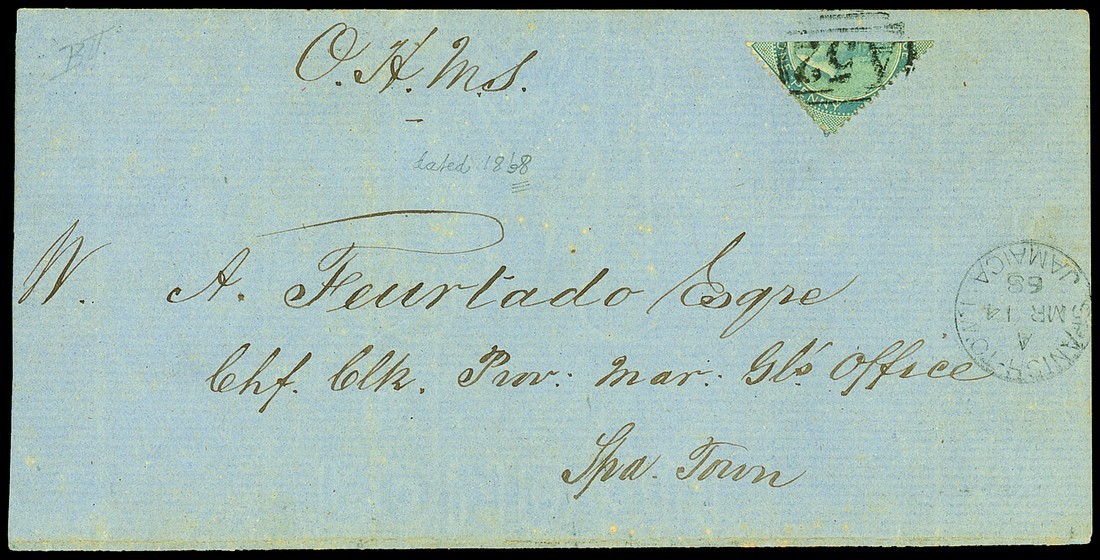 B II.
O. H. M. S.
dated 1868
W. A. Feurtado Esqre
Chf. Clk. Prov: Mar: Gl's Office
Spa. Town
A52
NNY
SPANISH-TOWN
4
MR 14
68
JAMAICA